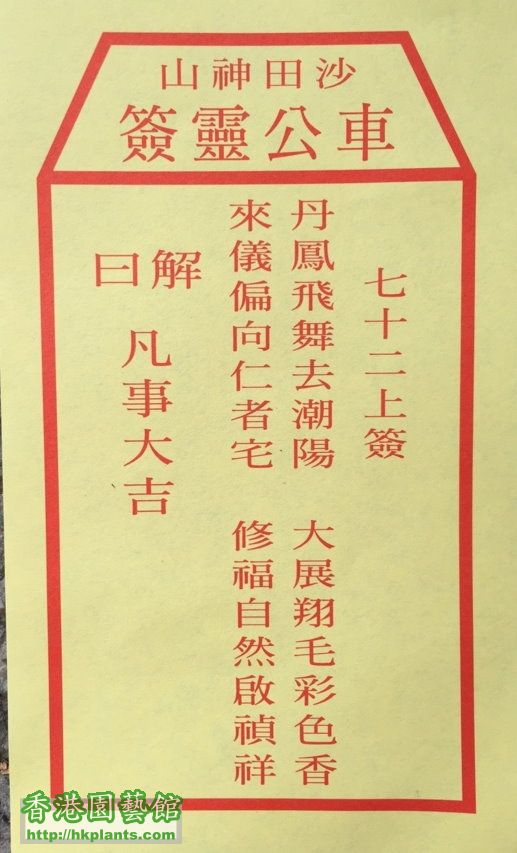 沙田神山
車公靈簽
七十二上簽
丹鳳飛舞去潮陽 大展翔毛彩色香
來儀偏向仁者宅 修福自然啟禎祥
解曰
凡事大吉
香港園藝館
http://hkplants.com